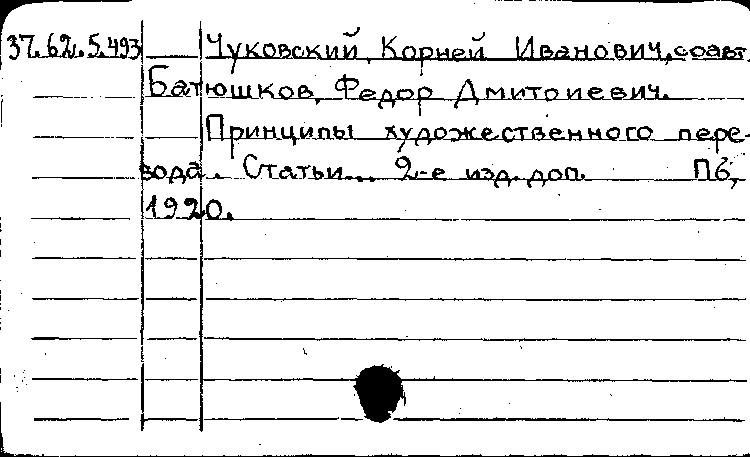 37.62.5.493 Чуковский, Корней Иванович, соавт.
Батюшков, Федор Дмитриевич.
Принципы художественного пере-
вода. Статьи... 2-е изд. доп. Пб,
1920.